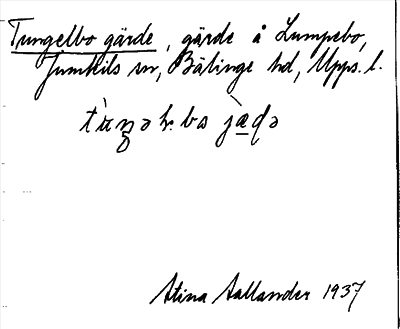 Tungelbo gärde, gärde å Lumpebo,
Jumkils sn, Bälinge hd, Upps. l.
Stina Aallander 1937